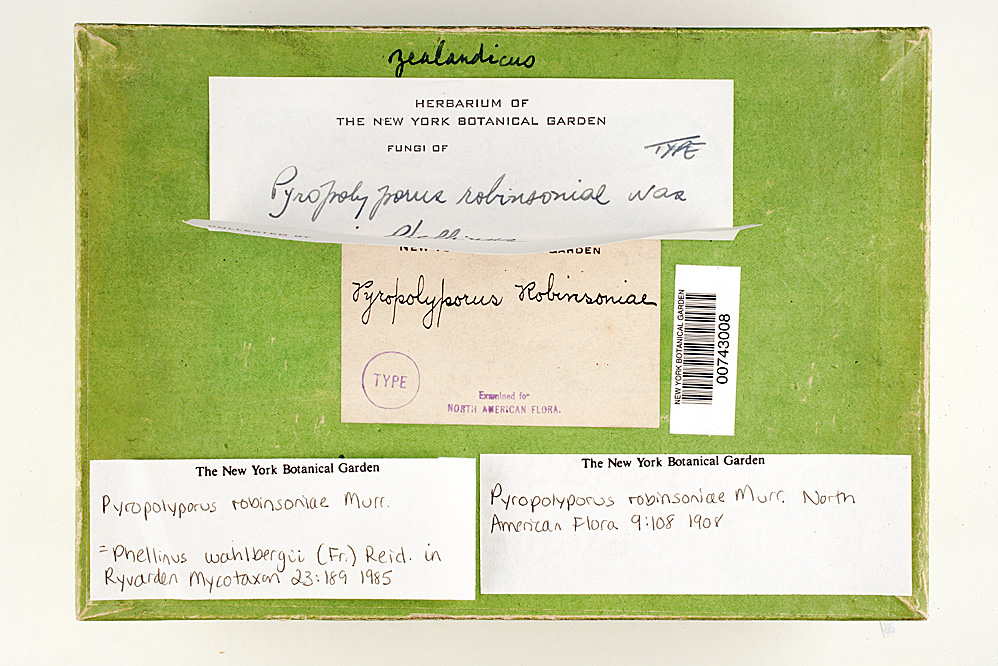 zealandicus
HERBARIUM OF
THE NEW YORK BOTANICAL GARDEN
FUNGI OF
TYPE
Pyropolyporus robinsoniae was
Phellinus
COLLECTED BY
NEW YO GARDEN
Pyropolyporus Robinsoniae
TYPE
Examined for
NORTH AMERICAN FLORA.
NEW YORK BOTANICAL GARDEN
00743008
The New York Botanical Garden
Pyropolyporus robinsoniae Murr.
=Phellinus wahlbergii (Fr.) Reid. in
Ryvarden Mycotaxon 23:189 1985
The New York Botanical Garden
Pyropolyporus robinsoniae Murr. North
American Flora 9:108 1908